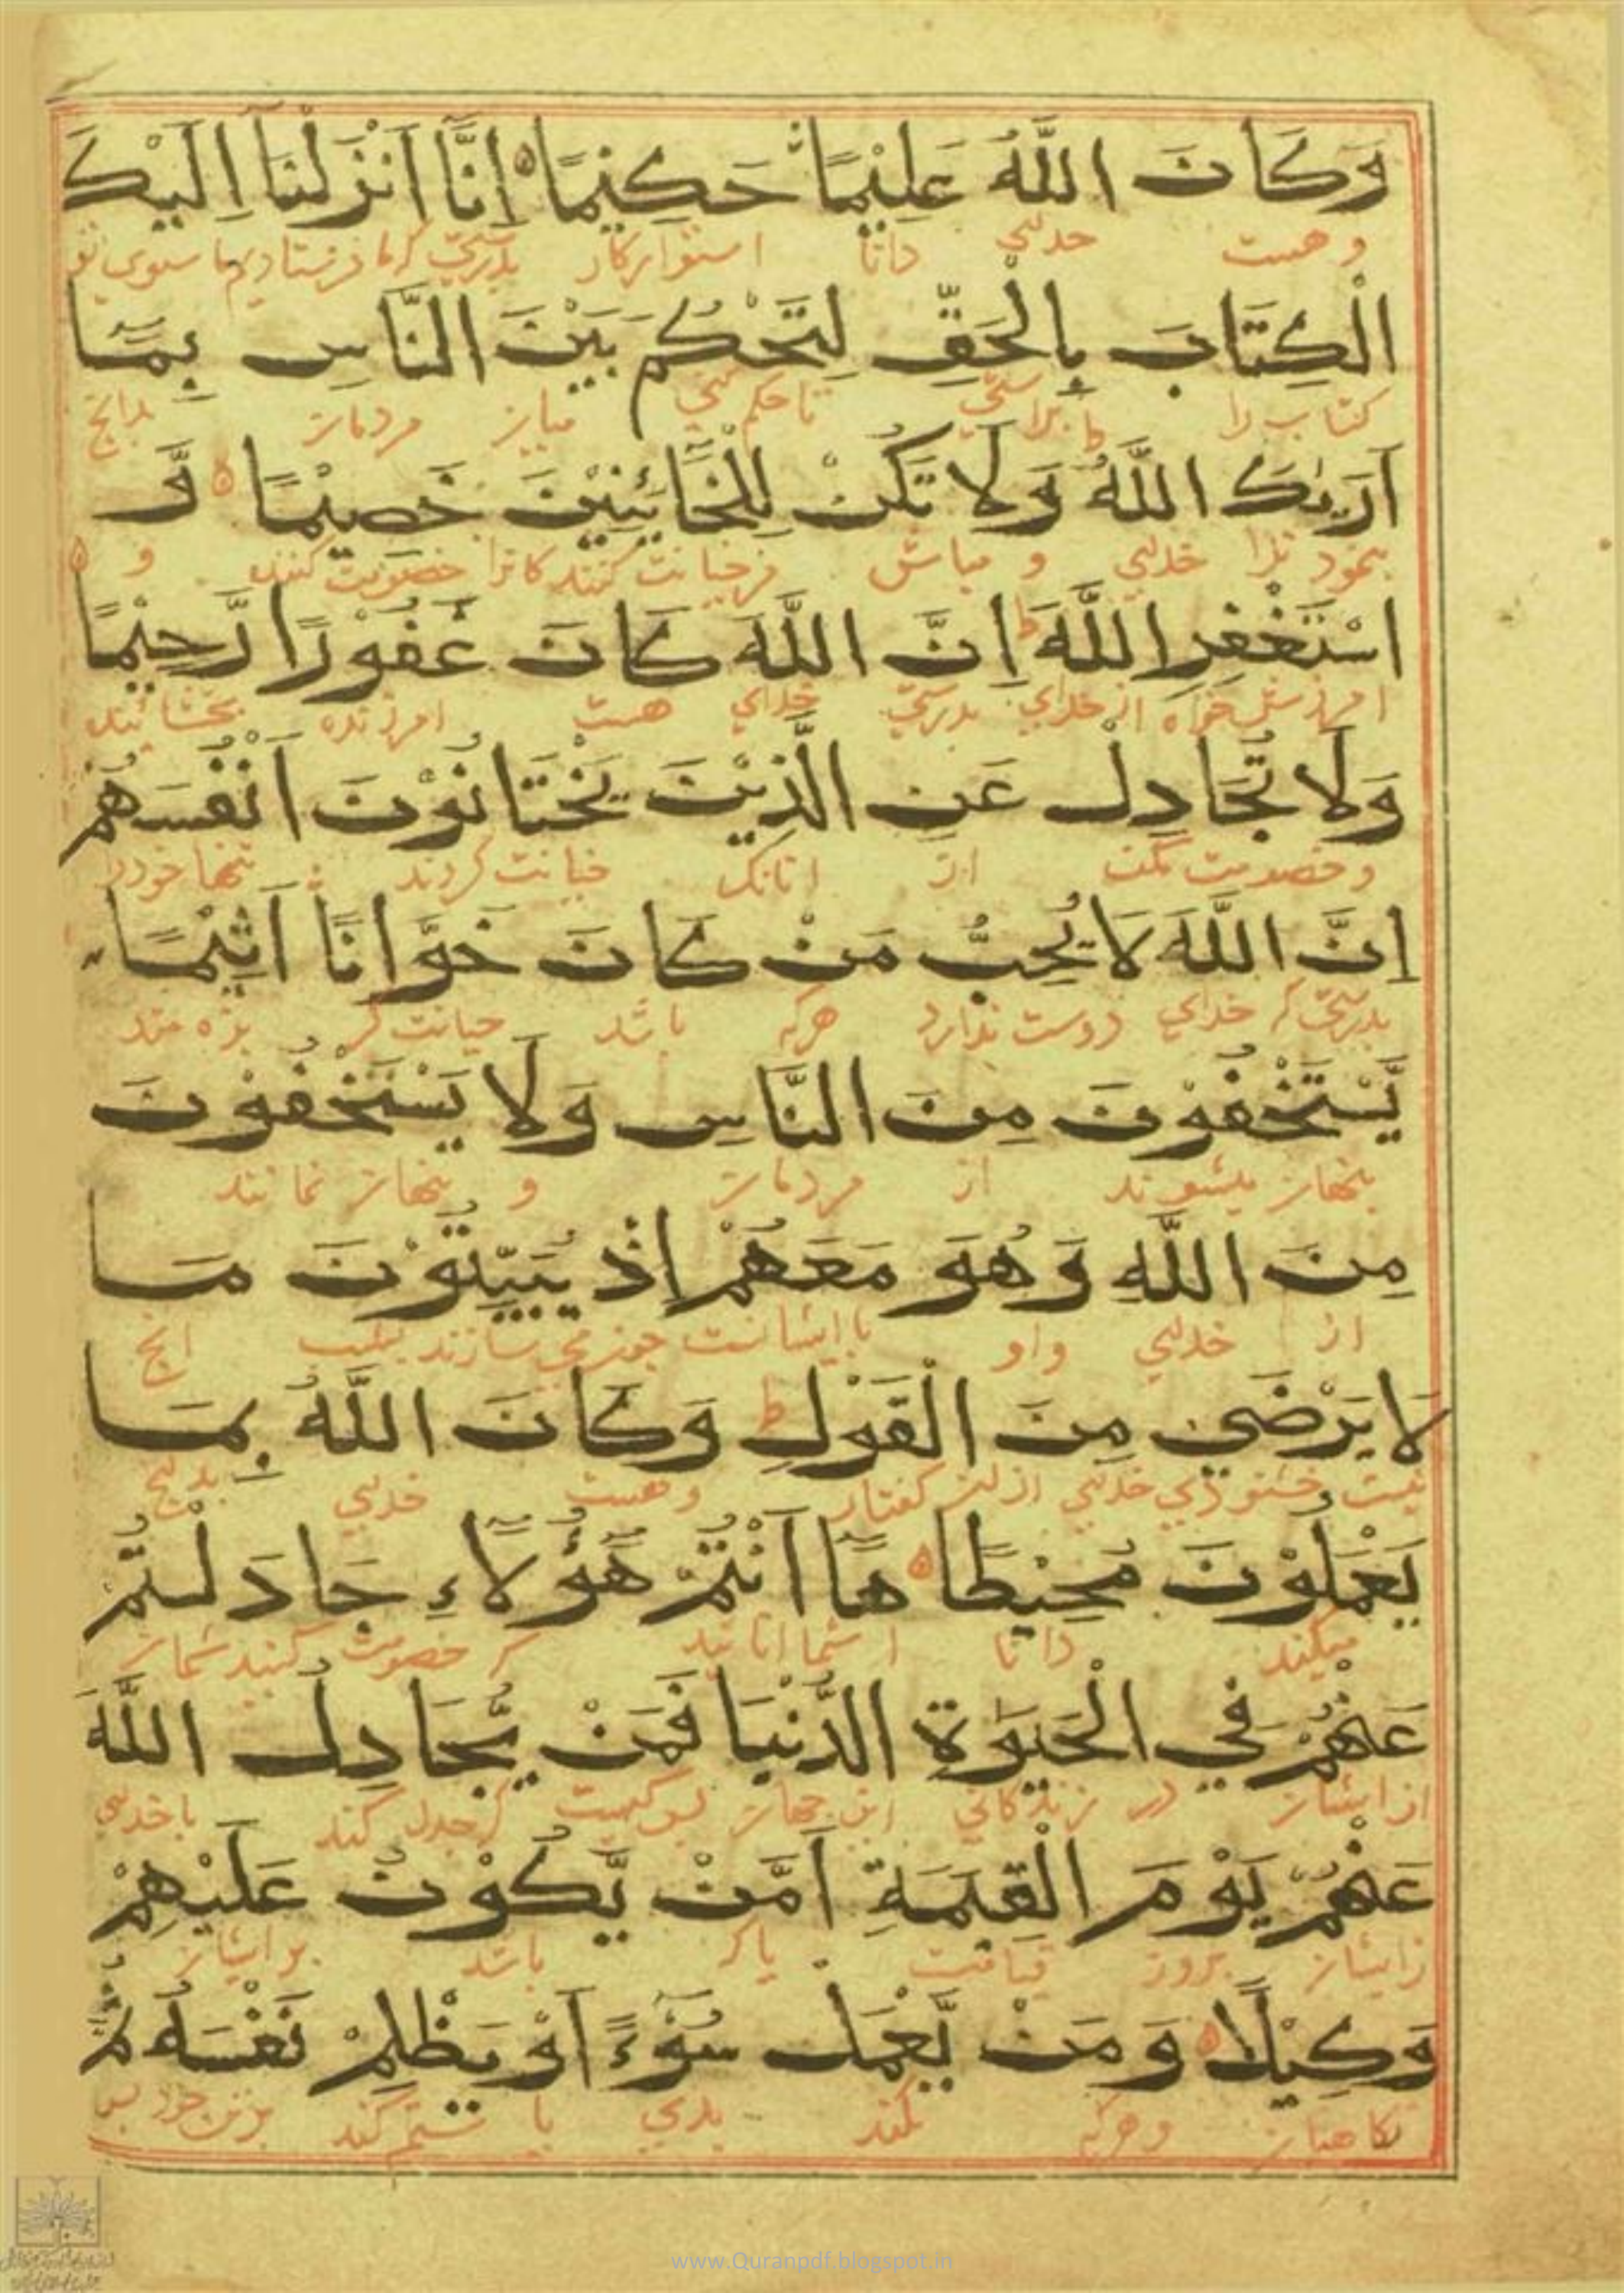 وَكَانَ اللَّهُ عَلِيْمًا حَكِيْمًا اِنَّآ اَنْزَلْنَآ اِلَيْكَ
و هست خدای دانا استوار کار بدرستی که ما فرستادیم ما سوی تو
الْكِتَابَ بِالْحَقِّ لِتَحْكُمَ بَيْنَ النَّاسِ بِمَآ
کتاب را براستی تا حکم کنی میان مردمان بدانچ
اَرٰىكَ اللَّهُ وَلَا تَكُنْ لِلْخَآئِنِيْنَ خَصِيْمًا وَّ
بنمود ترا خدای و مباش خیانت کنندکانرا خصومت کننده و
اسْتَغْفِرِ اللَّهَ ط اِنَّ اللَّهَ كَانَ غَفُوْرًا رَّحِيْمًا
امرزش خواه از خدای بدرستی خدای هست امرزنده بخشاینده
وَلَا تُجَادِلْ عَنِ الَّذِيْنَ يَخْتَانُوْنَ اَنْفُسَهُمْ
و خصومت مکن از انانک خیانت کردند تنها خودرا
اِنَّ اللَّهَ لَا يُحِبُّ مَنْ كَانَ خَوَّانًا اَثِيْمًا
بدرستی که خدای دوست ندارد هرکه باشد خیانت کر بزه مند
يَّسْتَخْفُوْنَ مِنَ النَّاسِ وَلَا يَسْتَخْفُوْنَ
پنهان میشوند از مردمان و پنهان نمانند
مِنَ اللَّهِ وَهُوَ مَعَهُمْ اِذْ يُبَيِّتُوْنَ مَا
از خدای و او با ایشانست چون می سازند بشب انچ
لَا يَرْضٰي مِنَ الْقَوْلِ ط وَكَانَ اللَّهُ بِمَا
نیست خشنودی خدای از کفتار و هست خدای بدانچ
يَعْمَلُوْنَ مُحِيْطًا هَآ اَنْتُمْ هَؤُلَآءِ جَادَلْتُمْ
میکنند دانا شما انانید که خصومت کنید شما
عَنْهُمْ فِي الْحَيٰوةِ الدُّنْيَا فَمَنْ يُّجَادِلُ اللَّهَ
از ایشان در زندکانی این جهان پس کیست که جدل کند با خدای
عَنْهُمْ يَوْمَ الْقِيٰمَةِ اَمَّنْ يَّكُوْنُ عَلَيْهِمْ
از ایشان بروز قیامت یا که باشد بر ایشان
وَكِيْلًا وَمَنْ يَّعْمَلْ سُوْٓءًا اَوْ يَظْلِمْ نَفْسَهُ ثُمَّ
نکاهبان و هرکه بکند بدی یا ستم کند برتن خود پس
www.Quranpdf.blogspot.in